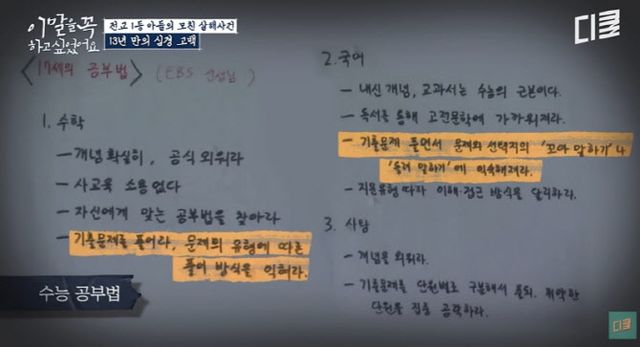 이 말을 꼭
하고 싶었어요
전교 1등 아들의 모친 살해사건
13년 만의 심경 고백
디클
<17세의 공부법> (EBS 선생님)
1. 수학
- 개념 확실히, 공식 외워라
- 사교육 소용 없다
- 자신에게 맞는 공부법을 찾아라
- 기출문제를 풀어라, 문제의 유형에 따른
풀이 방식을 익혀라.
2. 국어
- 내신 개념, 교과서는 수능의 근본이다.
- 독서를 통해 고전문학에 가까워져라.
- 기출문제 풀면서 문제와 선택지의 '꼬아 말하기'나
'돌려 말하기'에 익숙해져라.
- 지문유형 따라 이해·접근 방식을 달리하라.
3. 사탐
- 개념을 외워라.
- 기출문제를 단원별로 구분해서 풀되, 취약한
단원을 집중 공략하라.
수능 공부법
디클